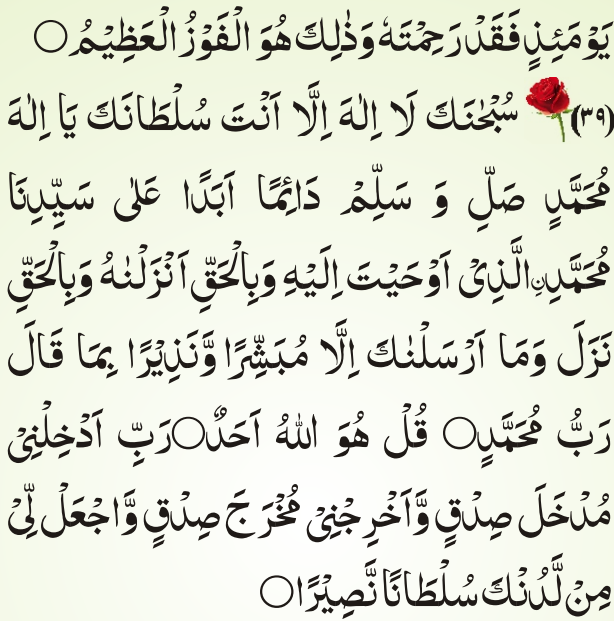 يَوْمَئِذٍ فَقَدْ رَحِمْتَهٗ وَذٰلِكَ هُوَ الْفَوْزُ الْعَظِيْمُ○
(٣٩) سُبْحٰنَكَ لَا اِلٰهَ اِلَّا اَنْتَ سُلْطَانَكَ يَا اِلٰهَ
مُحَمَّدٍ صَلِّ وَ سَلِّمْ دَائِمًا اَبَدًا عَلٰى سَيِّدِنَا
مُحَمَّدِنِ الَّذِىْ اَوْحَيْتَ اِلَيْهِ وَبِالْحَقِّ اَنْزَلْنٰهُ وَبِالْحَقِّ
نَزَلَ وَمَا اَرْسَلْنٰكَ اِلَّا مُبَشِّرًا وَّنَذِيْرًا بِمَا قَالَ
رَبُّ مُحَمَّدٍ○ قُلْ هُوَ اللهُ اَحَدٌ○رَبِّ اَدْخِلْنِىْ
مُدْخَلَ صِدْقٍ وَّاَخْرِجْنِىْ مُخْرَجَ صِدْقٍ وَّاجْعَلْ لِّىْ
مِنْ لَّدُنْكَ سُلْطَانًا نَّصِيْرًا○